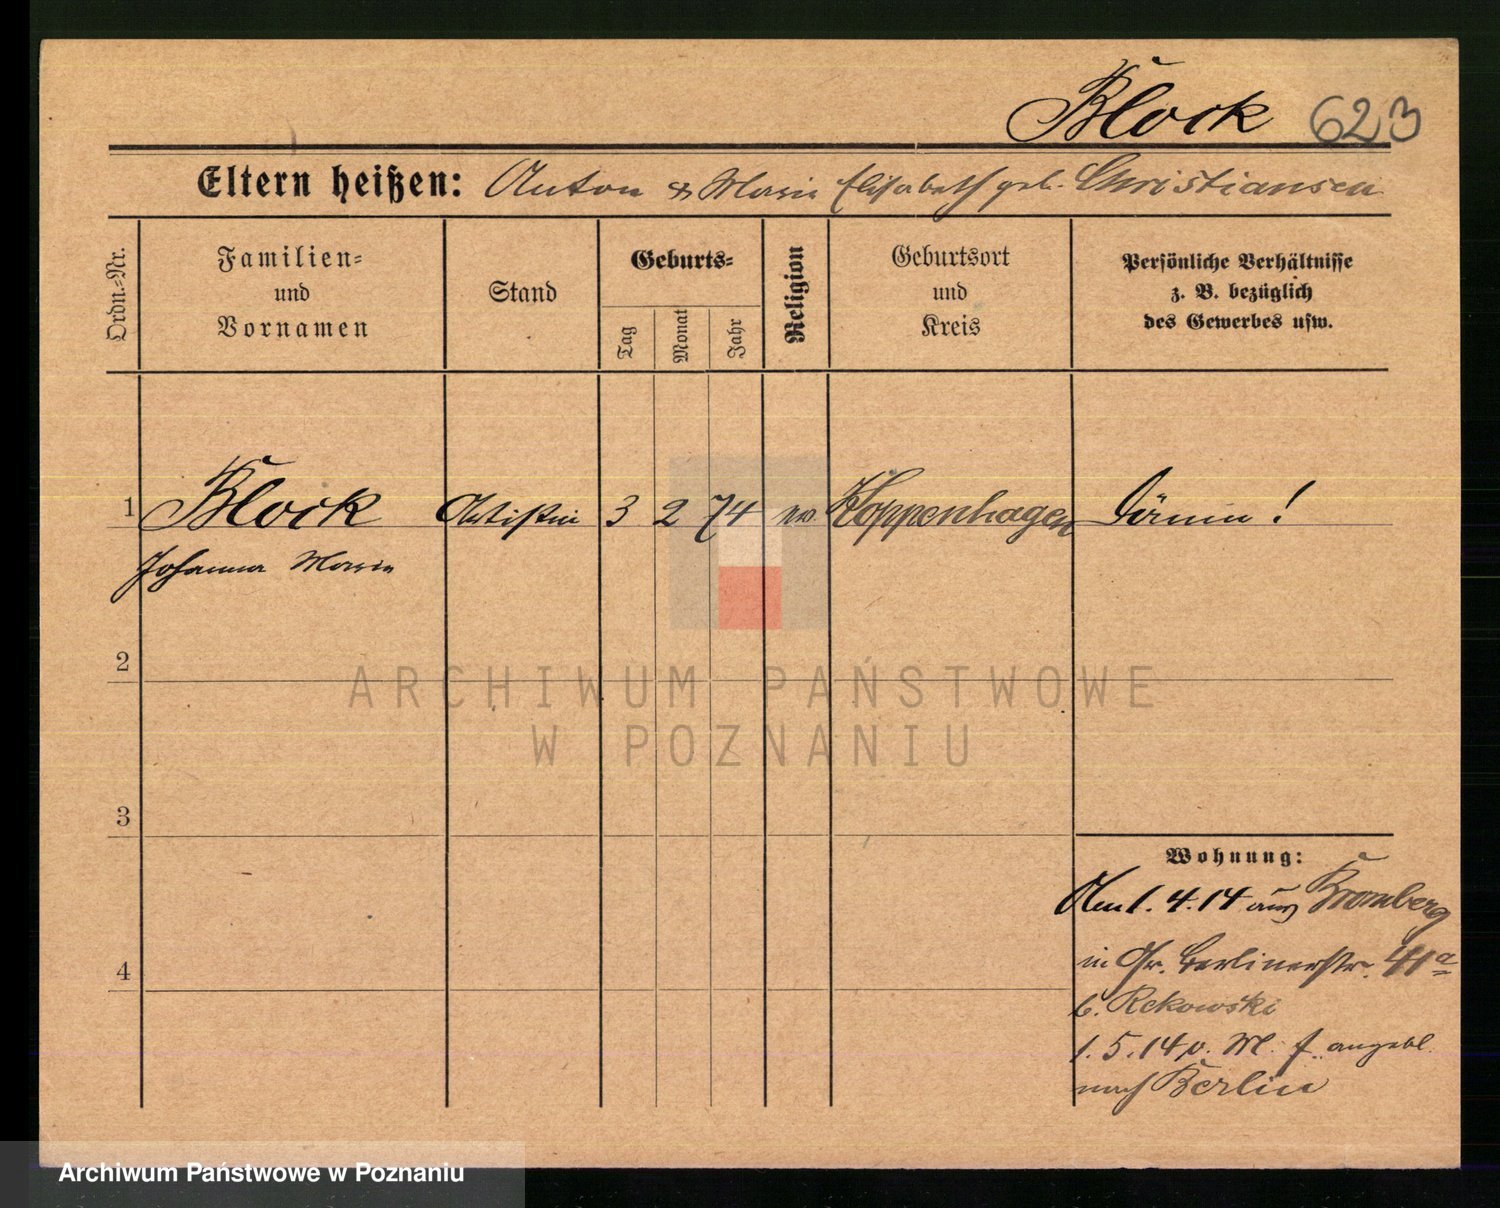 Block 623
Eltern heißen: Anton & Marie Elisabeth geb. Christiansen
Ordn.-Nr.
Familien-
und
Vornamen
Stand
Geburts-
Tag
Monat
Jahr
Religion
Geburtsort
und
Kreis
Persönliche Verhältnisse
z. B. bezüglich
des Gewerbes usw.
1 Block Artistin 3 2 74 ev Koppenhagen Dänin!
Johanna Marie
2
ARCHIWUM PAŃSTWOWE
W POZNANIU
3
Wohnung:
Am 1. 4. 14 aus Bromberg
4
in Gr. Berlinerstr. 41a
b. Rekowski
1. 5. 14 v. M. f. angebl.
nach Berlin
Archiwum Państwowe w Poznaniu